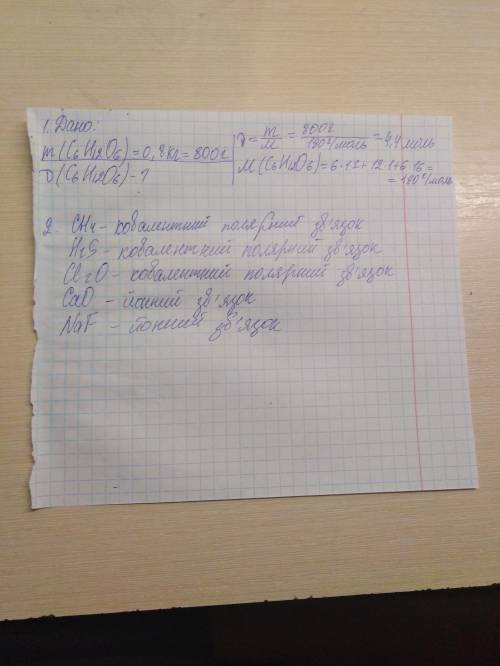 1. Дано:
m(C6H12O6) = 0,8кг = 800г
ν(C6H12O6) - ?
ν = m/M = 800г/180г/моль = 4,4 моль
M(C6H12O6) = 6·12+12·1+6·16 =
= 180г/моль
2. CH4 - ковалентний полярний зв'язок
H2S - ковалентний полярний зв'язок
Cl2O - ковалентний полярний зв'язок
CaO - йонний зв'язок
NaF - йонний зв'язок